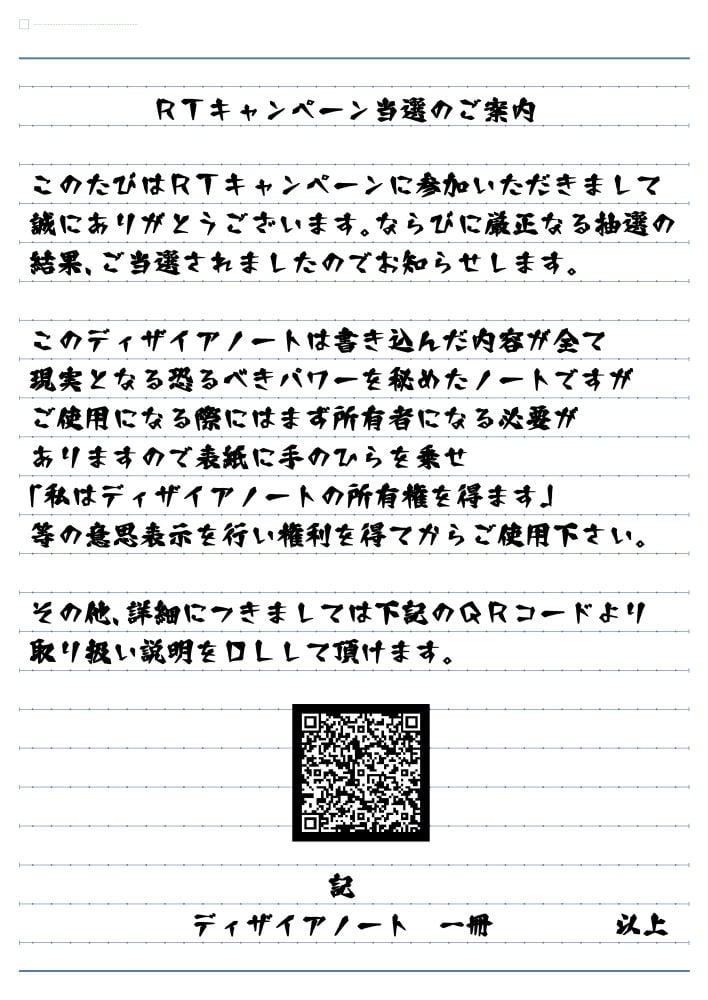 RTキャンペーン当選のご案内
このたびはRTキャンペーンに参加いただきまして
誠にありがとうございます。ならびに厳正なる抽選の
結果、ご当選されましたのでお知らせします。
このディザイアノートは書き込んだ内容が全て
現実となる恐るべきパワーを秘めたノートですが
ご使用になる際にはまず所有者になる必要が
ありますので表紙に手のひらを乗せ
「私はディザイアノートの所有権を得ます」
等の意思表示を行い権利を得てからご使用下さい。
その他、詳細につきましては下記のQRコードより
取り扱い説明をDLして頂けます。
記
ディザイアノート　一冊　以上